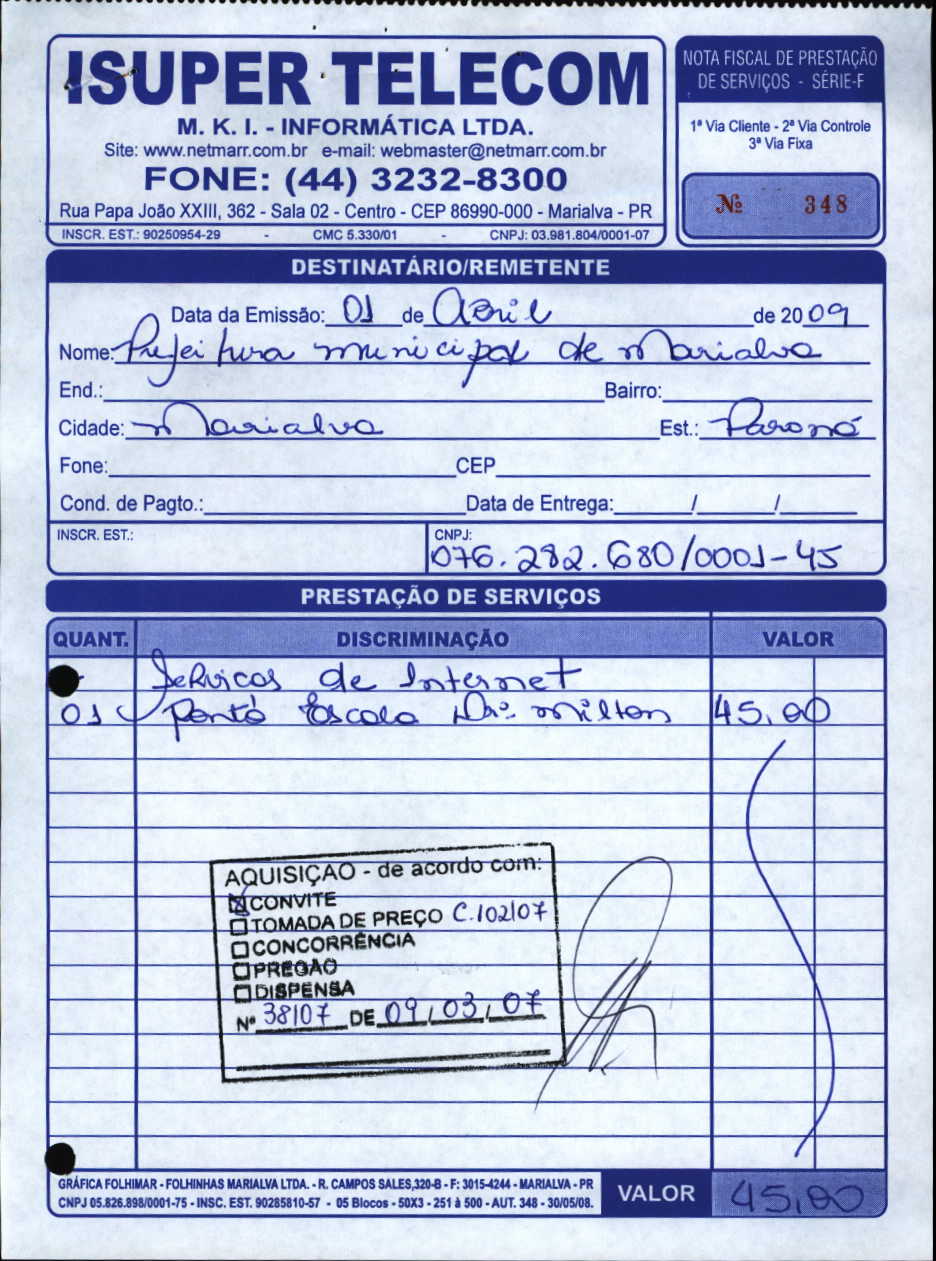 ISUPER TELECOM
M. K. I. - INFORMÁTICA LTDA.
Site: www.netmarr.com.br e-mail: webmaster@netmarr.com.br
FONE: (44) 3232-8300
Rua Papa João XXIII, 362 - Sala 02 - Centro - CEP 86990-000 - Marialva - PR
INSCR. EST.: 90250954-29 - CMC 5.330/01 - CNPJ: 03.981.804/0001-07
NOTA FISCAL DE PRESTAÇÃO
DE SERVIÇOS - SÉRIE-F
1ª Via Cliente - 2ª Via Controle
3ª Via Fixa
Nº 348
DESTINATÁRIO/REMETENTE
Data da Emissão: 01 de Abril de 2009
Nome: Prefeitura municipal de Marialva
End.: Bairro:
Cidade: Marialva Est.: Paraná
Fone: CEP
Cond. de Pagto.: Data de Entrega: / /
INSCR. EST.: CNPJ:
076.282.680/0001-45
PRESTAÇÃO DE SERVIÇOS
QUANT. DISCRIMINAÇÃO VALOR
Serviços de Internet
01 Ponto Escola Drº milton 45,00
AQUISIÇÃO - de acordo com:
CONVITE
TOMADA DE PREÇO C.102/07
CONCORRÊNCIA
PREGÃO
DISPENSA
Nº 38/07 DE 09/03/07
GRÁFICA FOLHIMAR - FOLHINHAS MARIALVA LTDA. - R. CAMPOS SALES,320-B - F: 3015-4244 - MARIALVA - PR
CNPJ 05.826.898/0001-75 - INSC. EST. 90285810-57 - 05 Blocos - 50X3 - 251 à 500 - AUT. 348 - 30/05/08.
VALOR 45,00